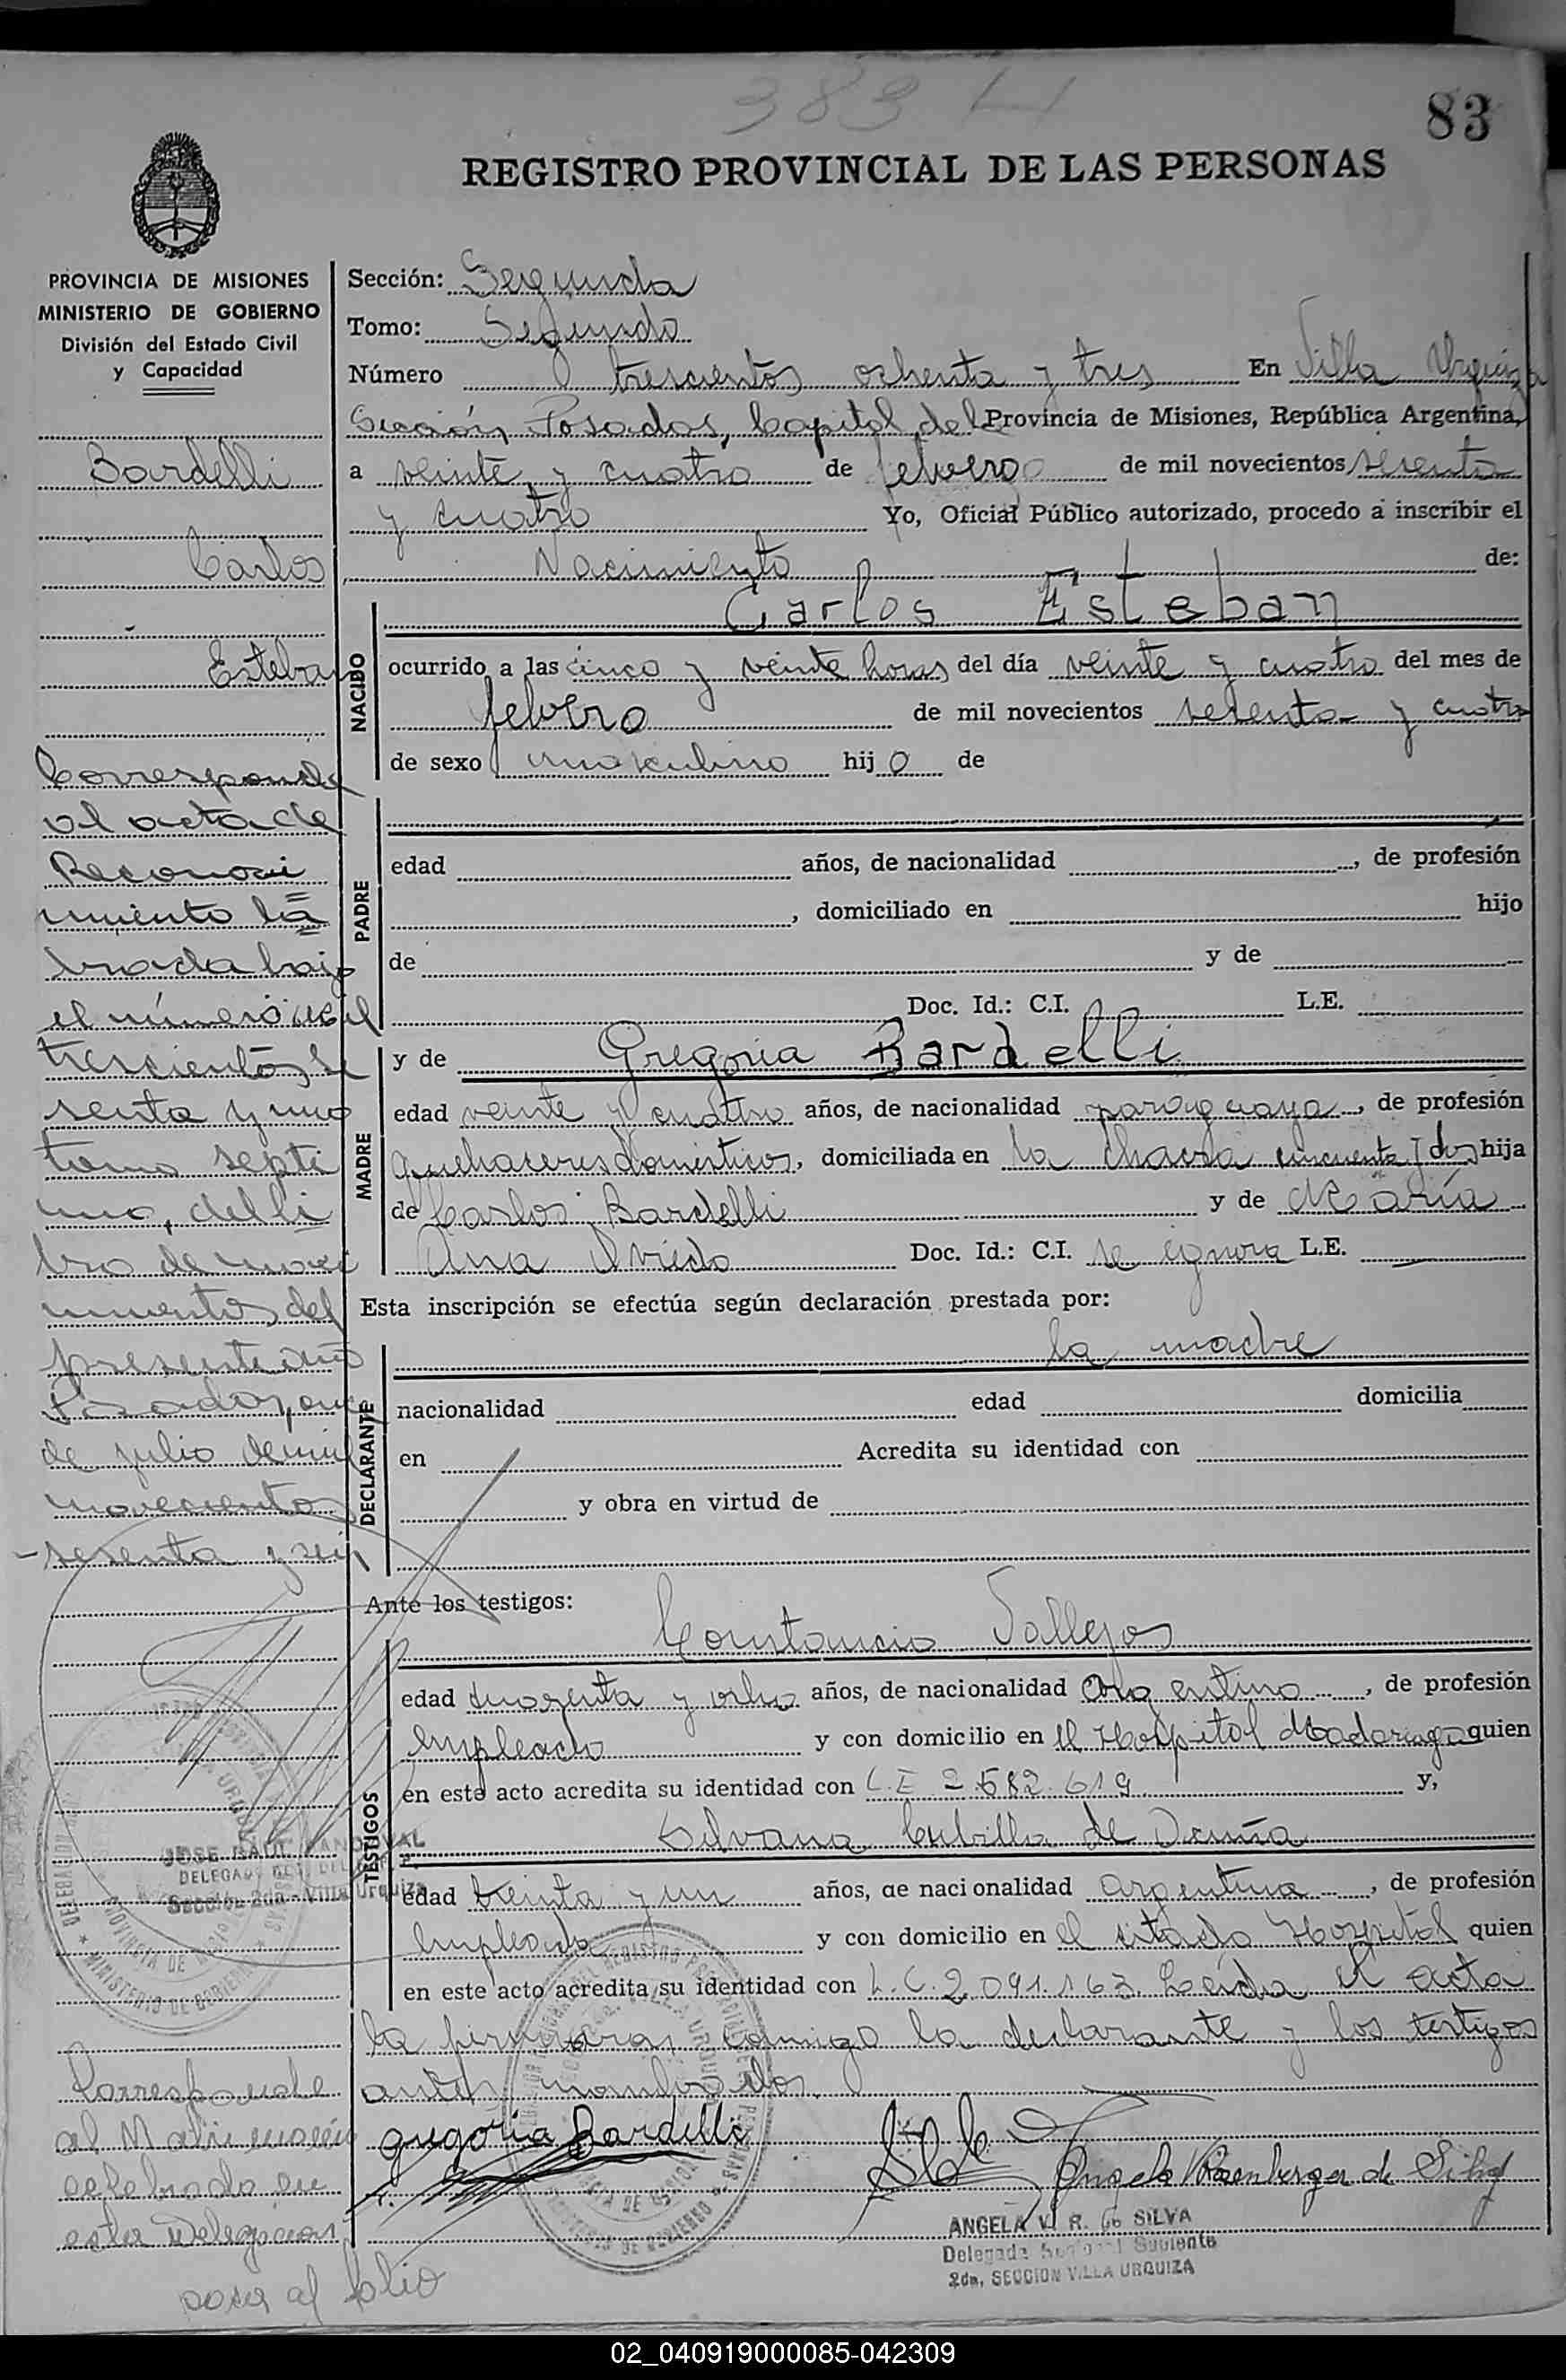 383
83
REGISTRO PROVINCIAL DE LAS PERSONAS
PROVINCIA DE MISIONES
MINISTERIO DE GOBIERNO
División del Estado Civil
y Capacidad
Bardelli
Carlos
Esteban
Corresponde
al acta de
Reconoci
miento la
brada bajo
el número mil
trescientos se
senta y uno
tomo septi
mo, del li
bro de naci
mientos del
presente año
Posadas, once
de julio de mil
novecientos
sesenta y seis
JOSE RAUL SANDOVAL
Sección 2da - Villa Urquiza
Corresponde
al Matrimonio
celebrado en
esta Delegación
pasa al folio
Sección: Segunda
Tomo: Segundo
Número trescientos ochenta y tres En Villa Urquiza
Sección Posadas, Capital de la Provincia de Misiones, República Argentina,
a veinte y cuatro de febrero de mil novecientos sesenta
y cuatro Yo, Oficial Público autorizado, procedo a inscribir el
Nacimiento de:
NACIDO
Carlos Esteban
ocurrido a las cinco y veinte horas del día veinte y cuatro del mes de
febrero de mil novecientos sesenta y cuatro
de sexo masculino hijo de
PADRE
edad años, de nacionalidad , de profesión
, domiciliado en hijo
de y de
Doc. Id.: C.I. L.E.
MADRE
y de Gregoria Bardelli
edad veinte y cuatro años, de nacionalidad paraguaya, de profesión
quehaceres domésticos, domiciliada en la chacra cincuenta y dos hija
de Carlos Bardelli y de María
Ana Oviedo Doc. Id.: C.I. se ignora L.E. —
Esta inscripción se efectúa según declaración prestada por:
DECLARANTE
la madre
nacionalidad edad domicilia
en Acredita su identidad con
y obra en virtud de
Ante los testigos:
TESTIGOS
Constancio Vallejos
edad cuarenta y ocho años, de nacionalidad Argentino, de profesión
empleado y con domicilio en el Hospital Madariaga quien
en este acto acredita su identidad con L.E 2.582.619 y,
Silvana Cubilla de Acuña
edad treinta y un años, de nacionalidad argentina, de profesión
empleada y con domicilio en el citado Hospital quien
en este acto acredita su identidad con L.C. 2.091.163. Leída el acta
la firmaran conmigo la declarante y los testigos
antes nombrados.
gregoria Bardelli
Angela Rosenberger de Silva
ANGELA V. R. de SILVA
Delegada Suplente
2da. SECCION VILLA URQUIZA
02_040919000085-042309